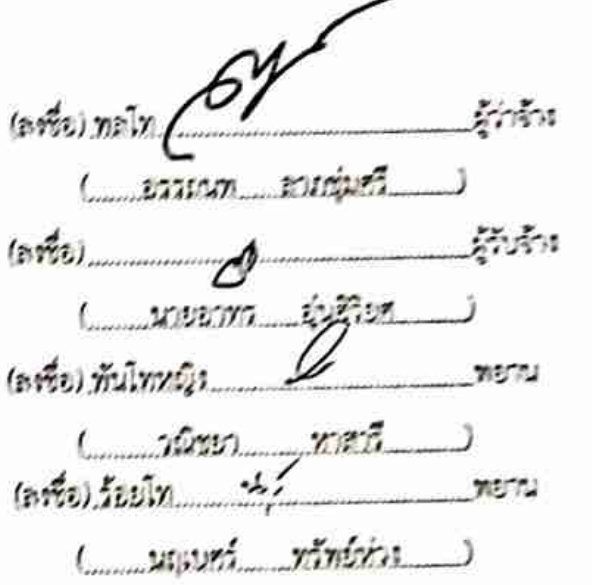 (ลงชื่อ) พลโท ผู้ว่าจ้าง
( อรรถนพ ลาภชุ่มศรี )
(ลงชื่อ) ผู้รับจ้าง
( นายอาทร )
(ลงชื่อ) พันโทหญิง พยาน
( วณิชยา หาสารี )
(ลงชื่อ) ร้อยโท พยาน
( นฤเบศร์ ทรัพย์ห่วง )